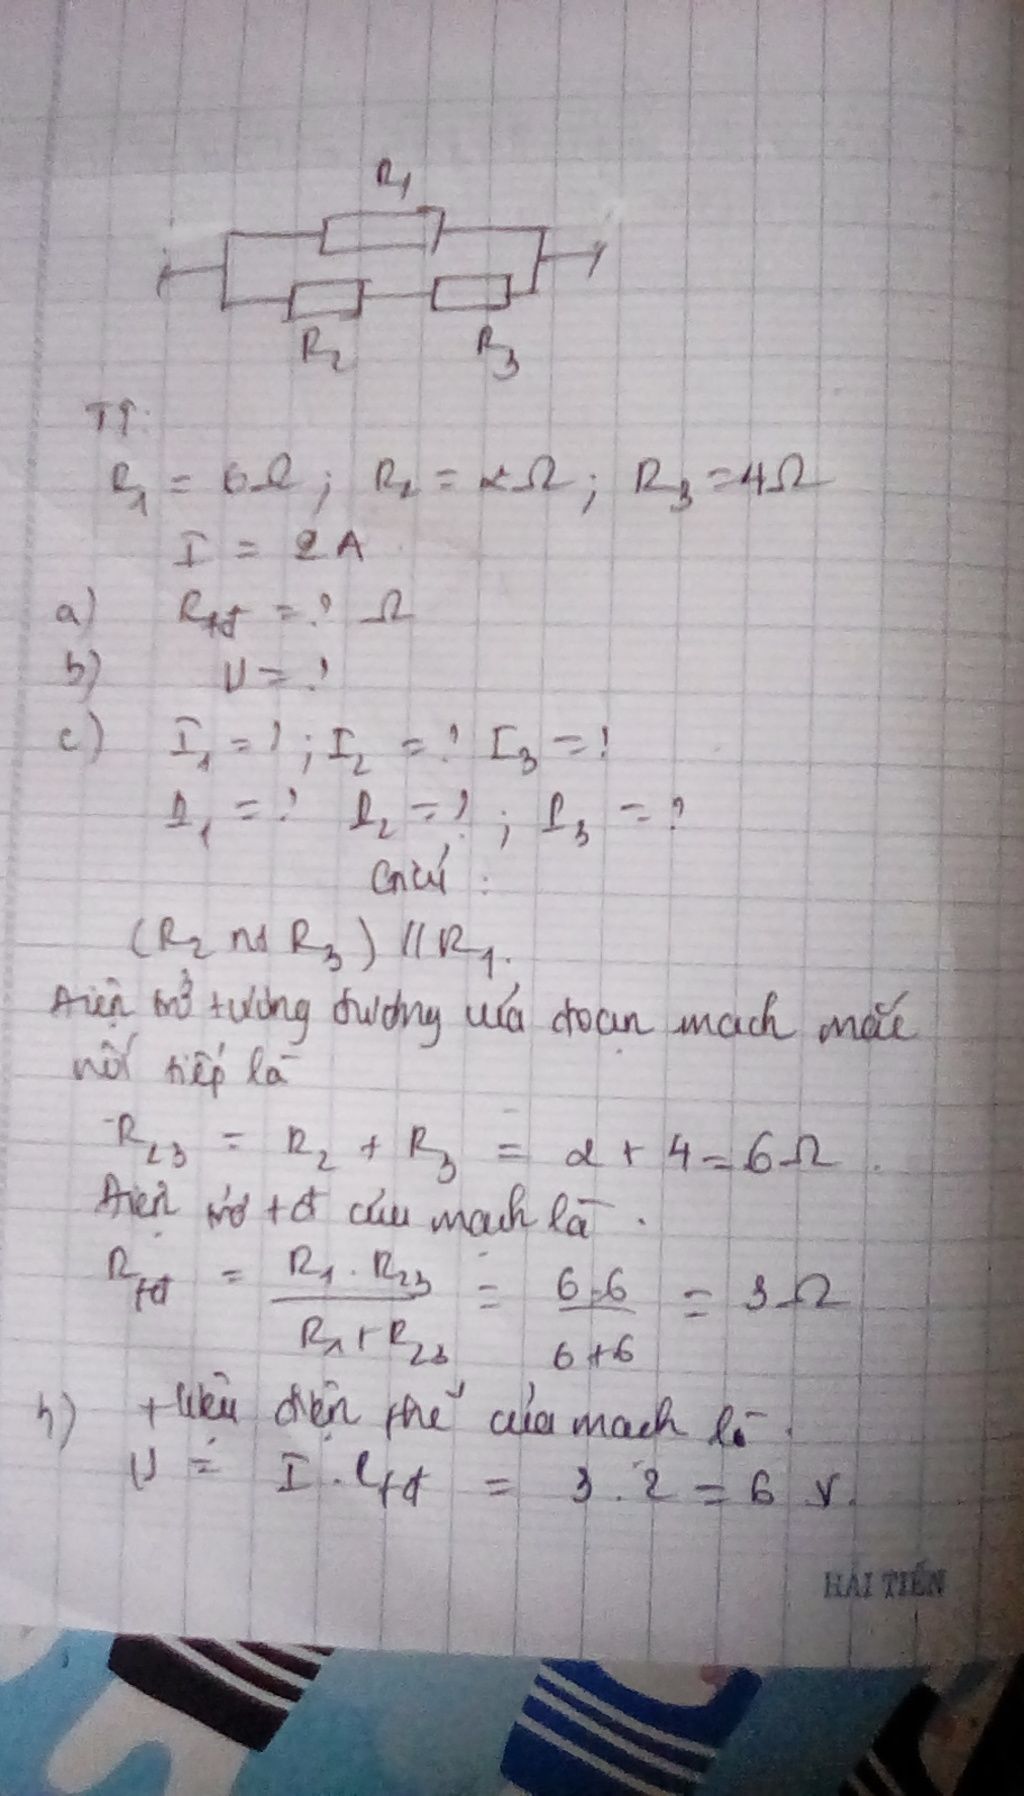 R₁
R₂ R₃
TT:
R₁ = 6Ω ; R₂ = 2Ω ; R₃ = 4Ω
I = 2A
a) Rtđ = ? Ω
b) U = ?
c) I₁ = ? ; I₂ = ? I₃ = ?
= ? = ? ; = ?
Giải :
(R₂ nt R₃) // R₁.
Điện trở tương đương của đoạn mạch mắc
nối tiếp là
R₂₃ = R₂ + R₃ = 2 + 4 = 6Ω.
Điện trở tđ của mạch là.
Rtđ = R₁ . R₂₃ / R₁ + R₂₃ = 6.6 / 6+6 = 3Ω
b) Hiệu điện thế của mạch là.
U = I . Rtđ = 3 . 2 = 6 V.
HẢI TIẾN